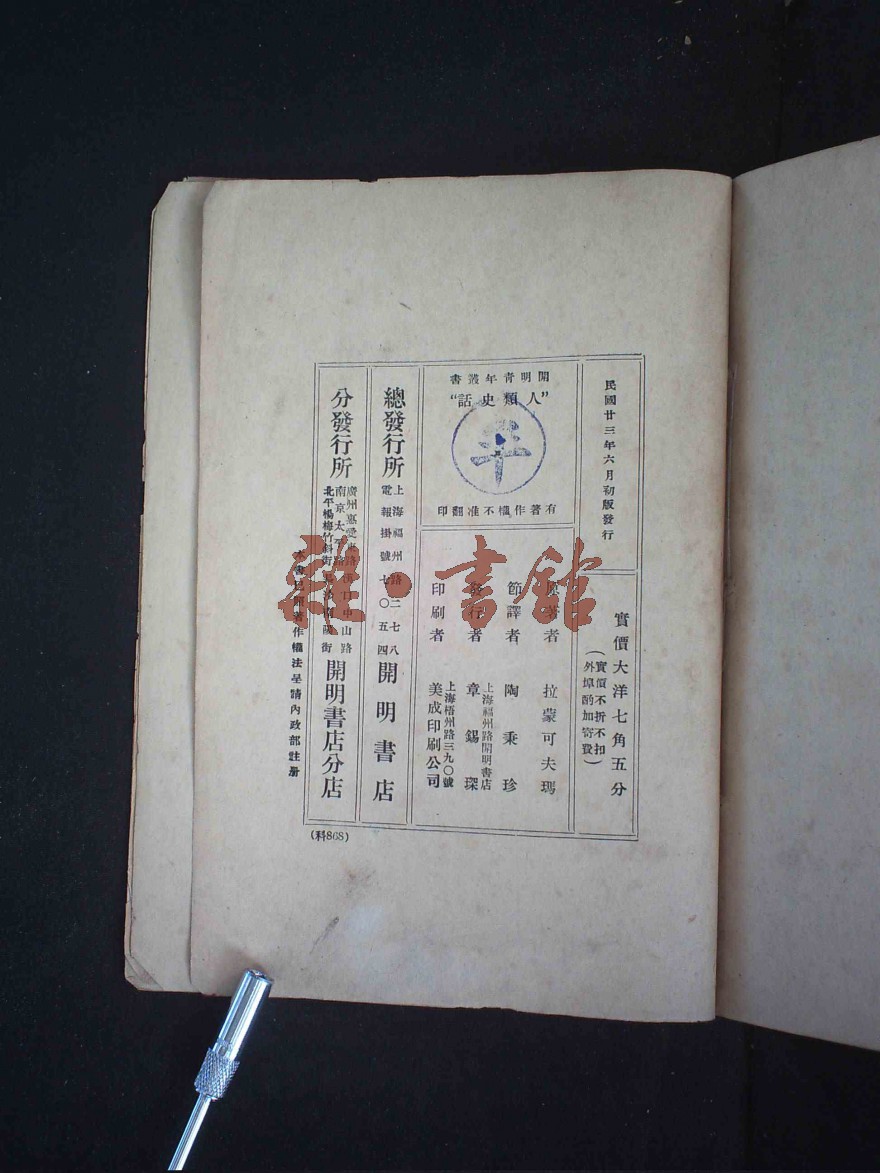 民國廿三年六月初版發行
實價大洋七角五分
(實價不折不扣
外埠酌加寄費)
開明青年叢書
“人類史話”
有著作權不准翻印
原著者 拉蒙可夫瑪
節譯者 陶秉珍
發行者 章錫琛
上海福州路開明書店
印刷者 美成印刷公司
上海梧州路三九〇號
總發行所 開明書店
上海福州路二七八
電報掛號七〇五四
分發行所 開明書店分店
廣州惠愛東路
中山路
南京太平路
北平楊梅竹斜街
本書
著作權法呈請內政部註册
(科868)
雜·書館